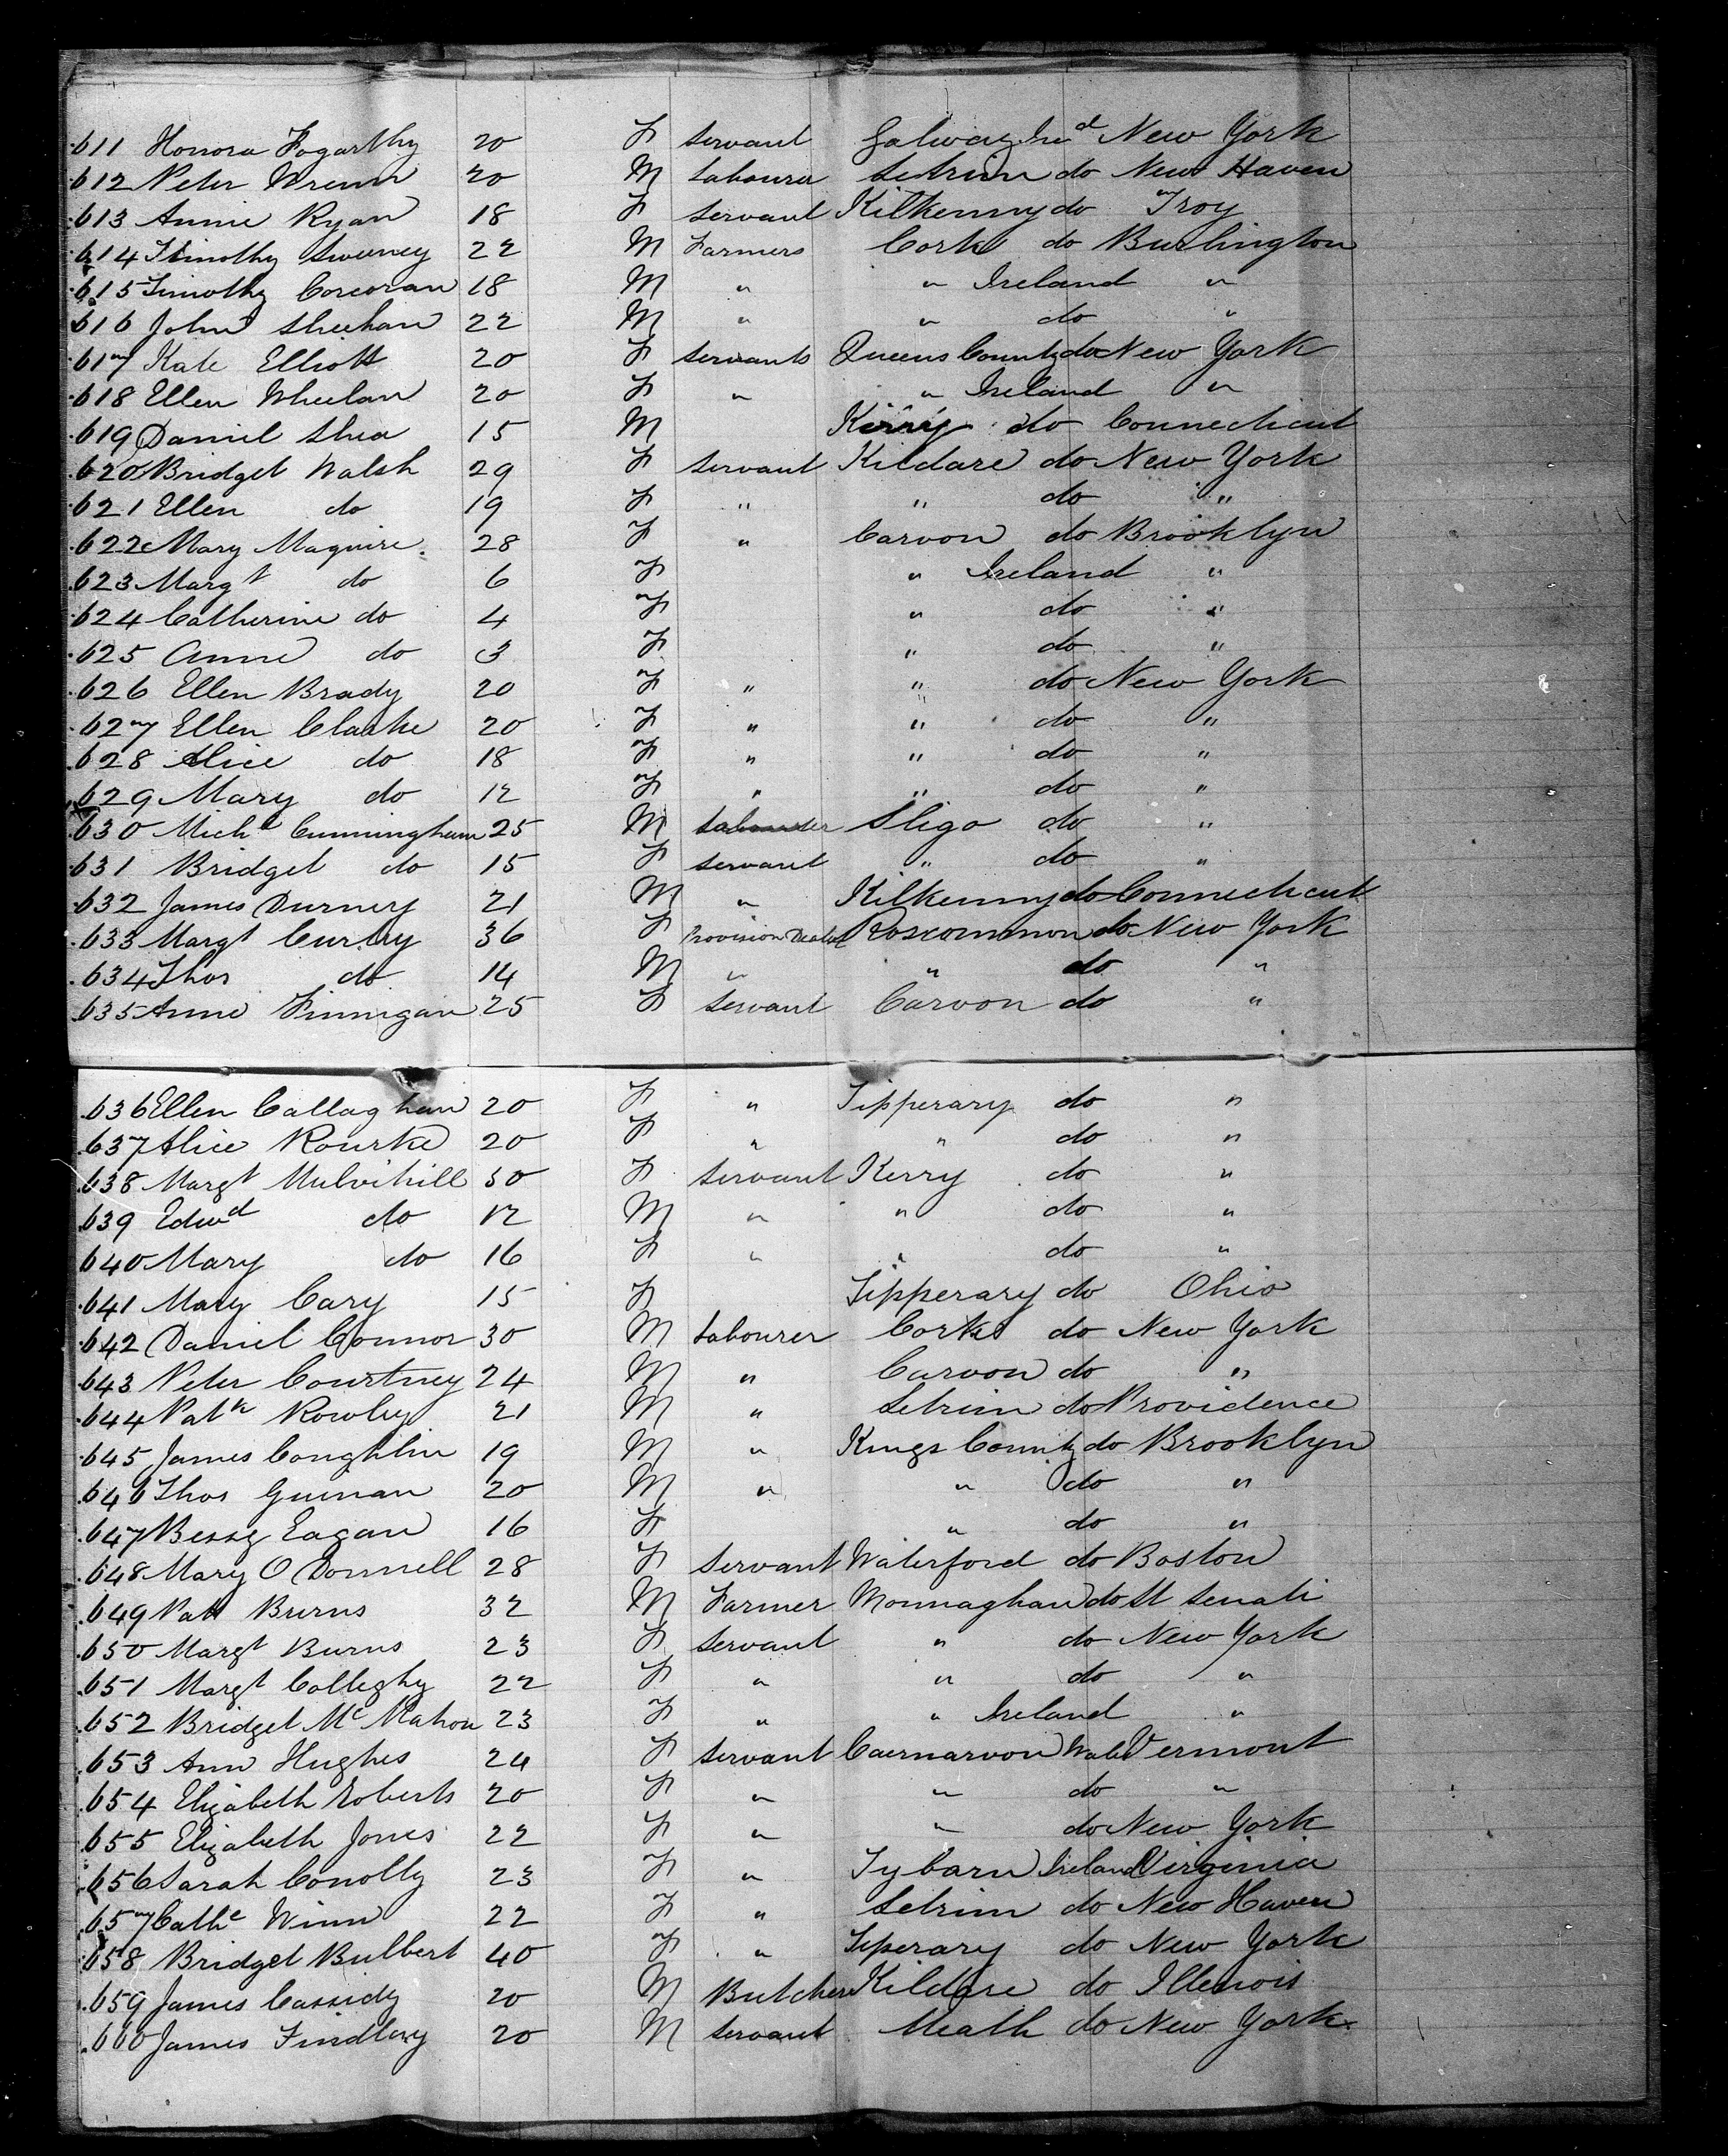 611 Honora Fogarthy 20 F Servant Galway Ire^d New York
612 Peter Wrenn 20 M Labourer Letrim do New Haven
613 Annie Ryan 18 F Servant Kilkenny do Troy
614 Timothy Sweeney 22 M Farmers Cork do Burlington
615 Timothy Corcoran 18 M " " Ireland "
616 John Sheehan 22 M " " do "
617 Kate Elliott 20 F Servants Queens County do New York
618 Ellen Wheelan 20 F " " Ireland "
619 Daniel Shea 15 M Kerry do Connecticut
620 Bridget Walsh 29 F Servant Kildare do New York
621 Ellen do 19 F " " do "
622 Mary Maguire 28 F " Carvon do Brooklyn
623 Marg^t do 6 F " Ireland "
624 Catherine do 4 F " do "
625 Anne do 3 F " do "
626 Ellen Brady 20 F " " do New York
627 Ellen Clarke 20 F " " do "
628 Alice do 18 F " " do "
629 Mary do 12 F " " do "
630 Mich^l Cunningham 25 M Labourer Sligo do "
631 Bridget do 15 F Servant " do "
632 James Durney 21 M " Kilkenny do Connecticut
633 Marg^t Curley 36 F Provision Dealer Roscommon do New York
634 Thos do 14 M " " do "
635 Anne Finnigan 25 F Servant Carvon do "
636 Ellen Callaghan 20 F " Tipperary do "
637 Alice Rourke 20 F " " do "
638 Marg^t Mulvihill 50 F Servant Kerry do "
639 Edw^d do 12 M " " do "
640 Mary do 16 F " " do "
641 Mary Cary 15 F Tipperary do Ohio
642 Daniel Connor 30 M Labourer Cork do New York
643 Peter Courtney 24 M " Carvon do "
644 Pat^k Rowley 21 M " Letrim do Providence
645 James Coughlin 19 M " Kings County do Brooklyn
646 Thos Guinan 20 M " " do "
647 Bessy Eagan 16 F " do "
648 Mary O Donnell 28 F Servant Waterford do Boston
649 Patt Burns 32 M Farmer Monnaghan do St
650 Marg^t Burns 23 F Servant " do New York
651 Marg^t Colleghy 22 F " " do "
652 Bridget M^c Mahon 23 F " " Ireland "
653 Ann Hughes 24 F Servant Caernarvon Wales Vermont
654 Elizabeth Roberts 20 F " " do "
655 Elizabeth Jones 22 F " " do New York
656 Sarah Conolly 23 F " Tybarn Ireland Virginia
657 Cath^e Winn 22 F " Letrim do New Haven
658 Bridget Bulbert 40 F " Tiperary do New York
659 James Cassidy 20 M Butcher Kildare do Illenois
660 James Findlay 20 M Servant Meath do New York